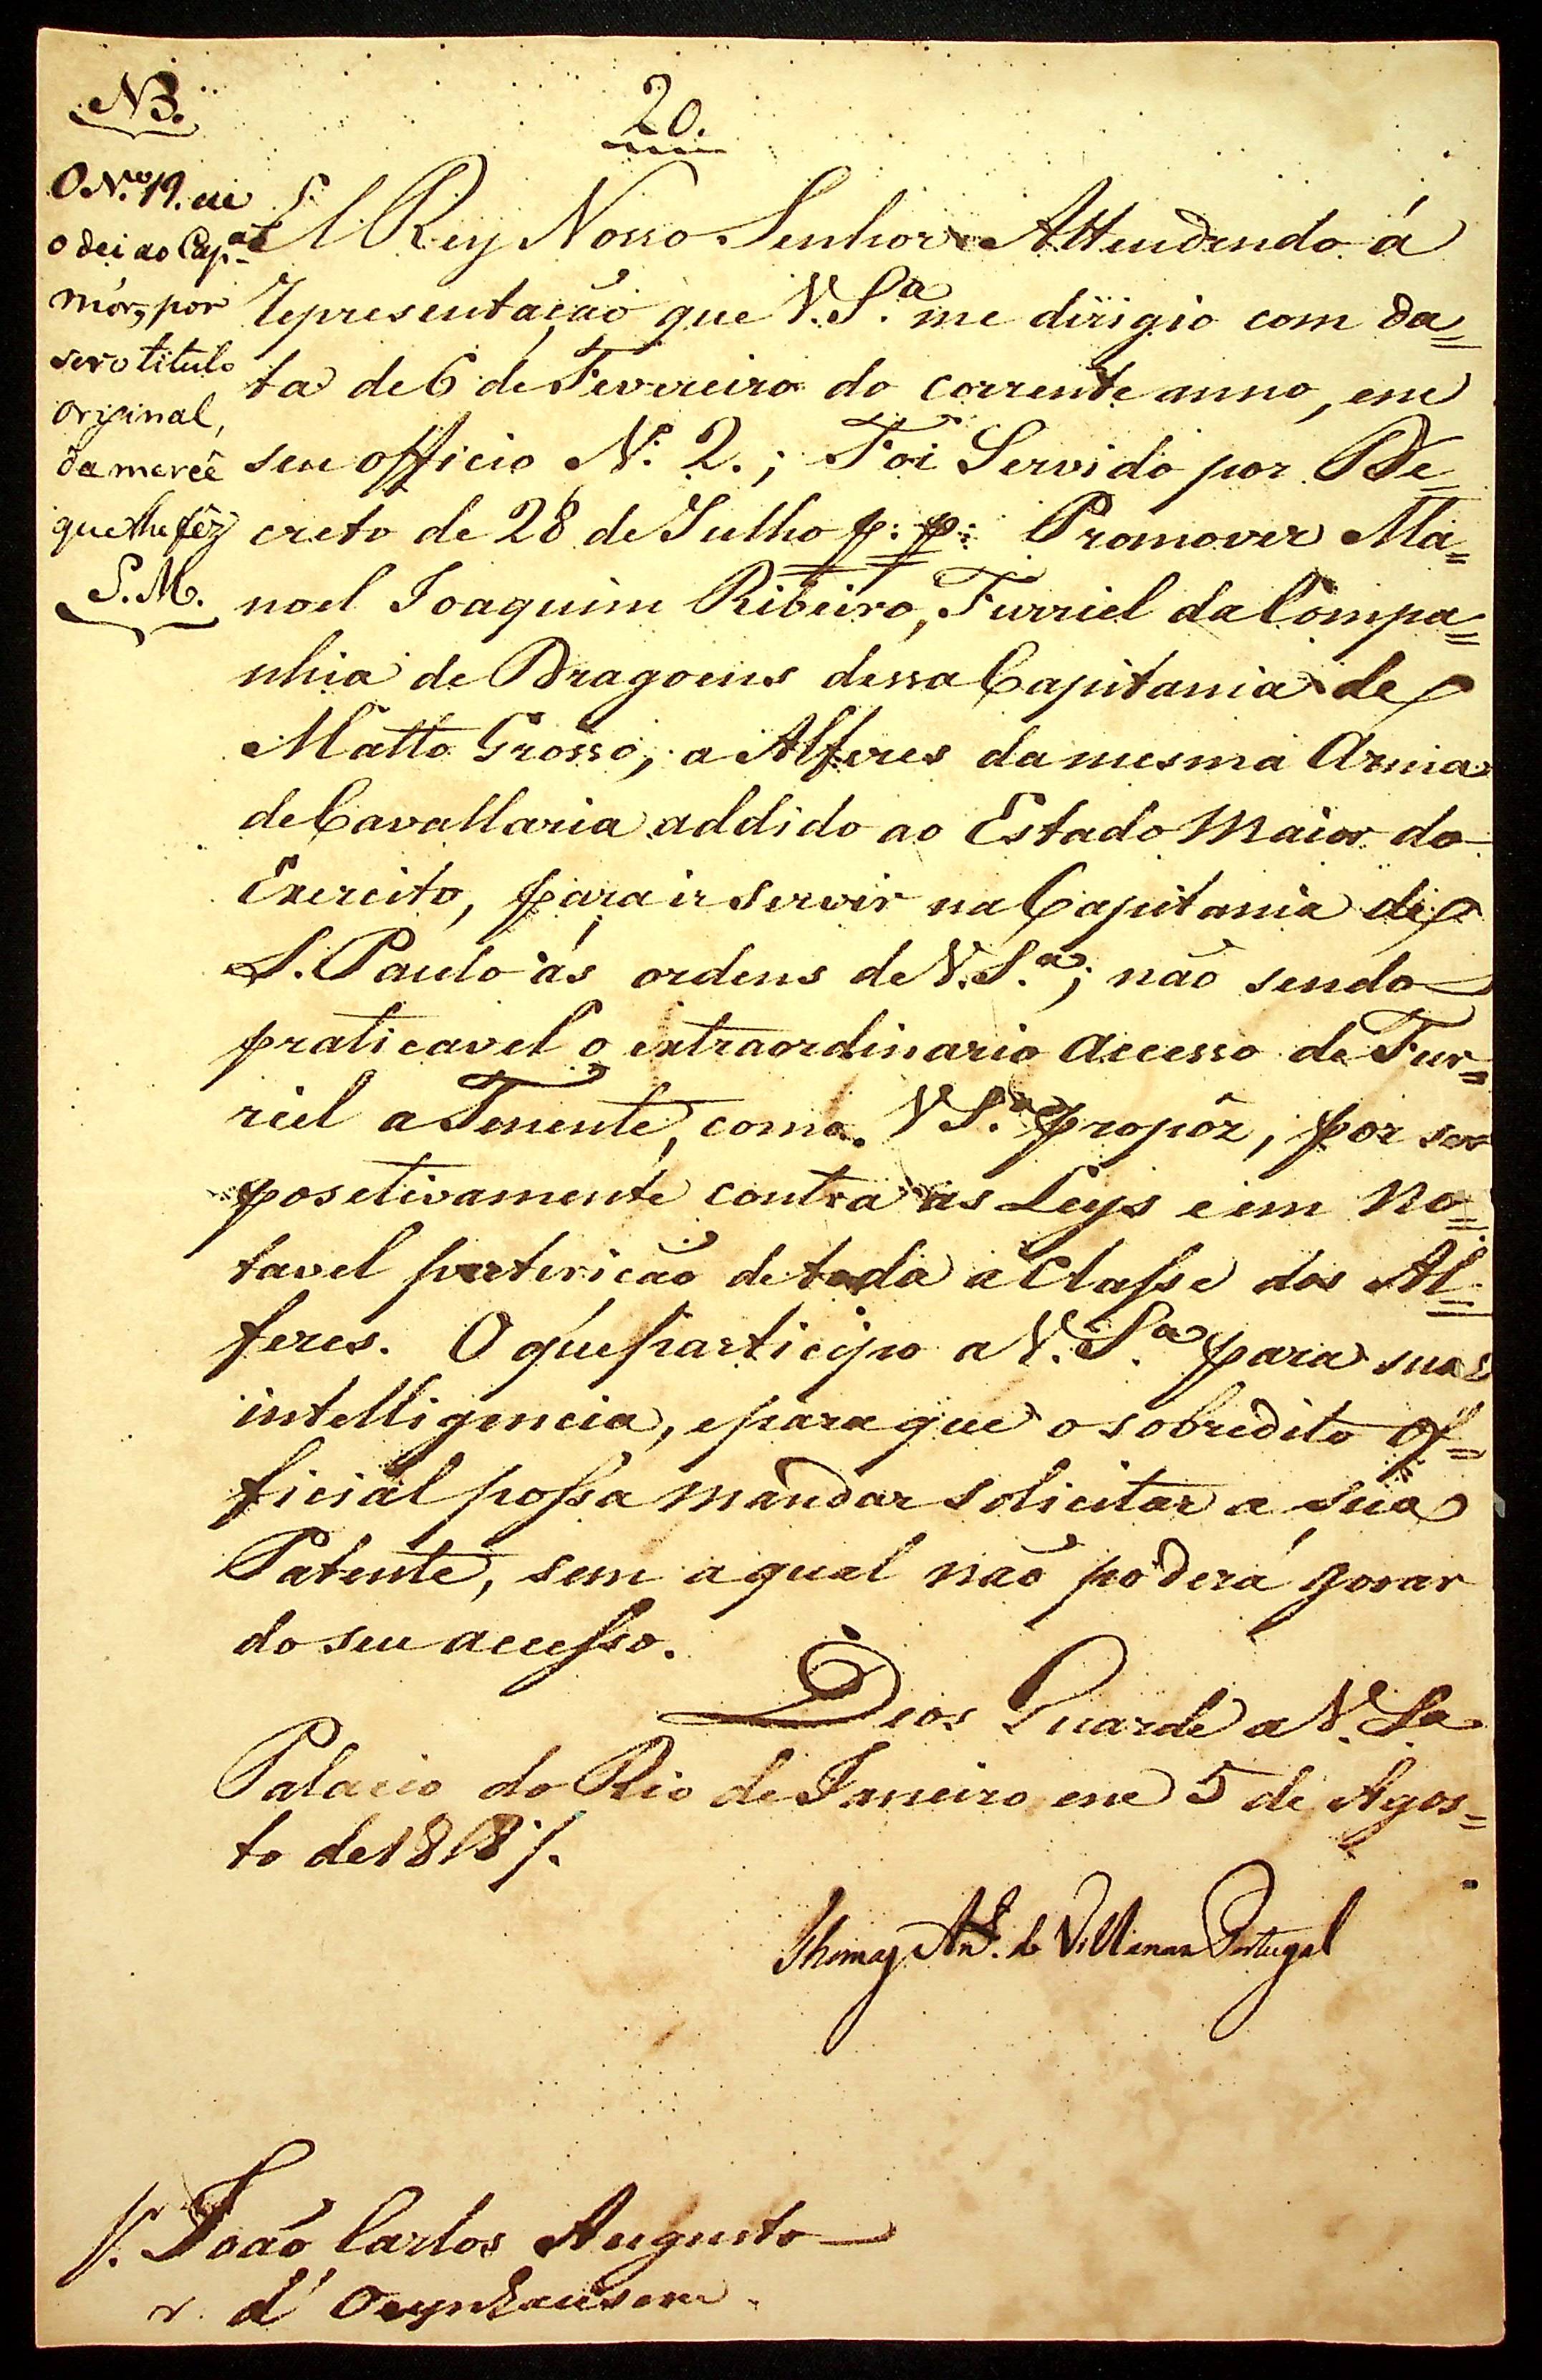 NB.
20.
O N.º 19. eu
o dei ao Cap.am
mór, por
ser o titulo
original,
da mercê
que lhe fêz
S. M.
El Rey Nosso Senhor Attendendo á
representação que V. S.ª me dirigio com da=
ta de 6 de Fevereiro do corrente anno, em
seu officio N. 2.; Foi Servido por De=
creto de 28 de Julho p: p: Promover Ma=
noel Joaquim Ribeiro, Furriel da Compa=
nhia de Dragoens dessa Capitania de
Matto Grosso, a Alferes da mesma Arma
de Cavallaria addido ao Estado Maior do
Exercito, para ir servir na Capitania de
S. Paulo ás ordens de V. S.ª; não sendo
praticavel o extraordinario accesso de Fur=
riel a Tenente, como V S.ª propôz, por ser
posetivamente contra as Leys e em no=
tavel preterição de toda a Classe dos Al=
feres. O que participo a V. S.ª para sua
intelligencia, e para que o sobredito Of=
ficial possa mandar solicitar a sua
Patente, sem a qual não poderá gozar
do seu accesso.
Deos Guarde a V. Sª
Palacio do Rio de Janeiro em 5 de Agos=
to de 1818 /.
Thomaz Ant. de Villanova Portugal
S. João Carlos Augusto
d' Oeynhausen.